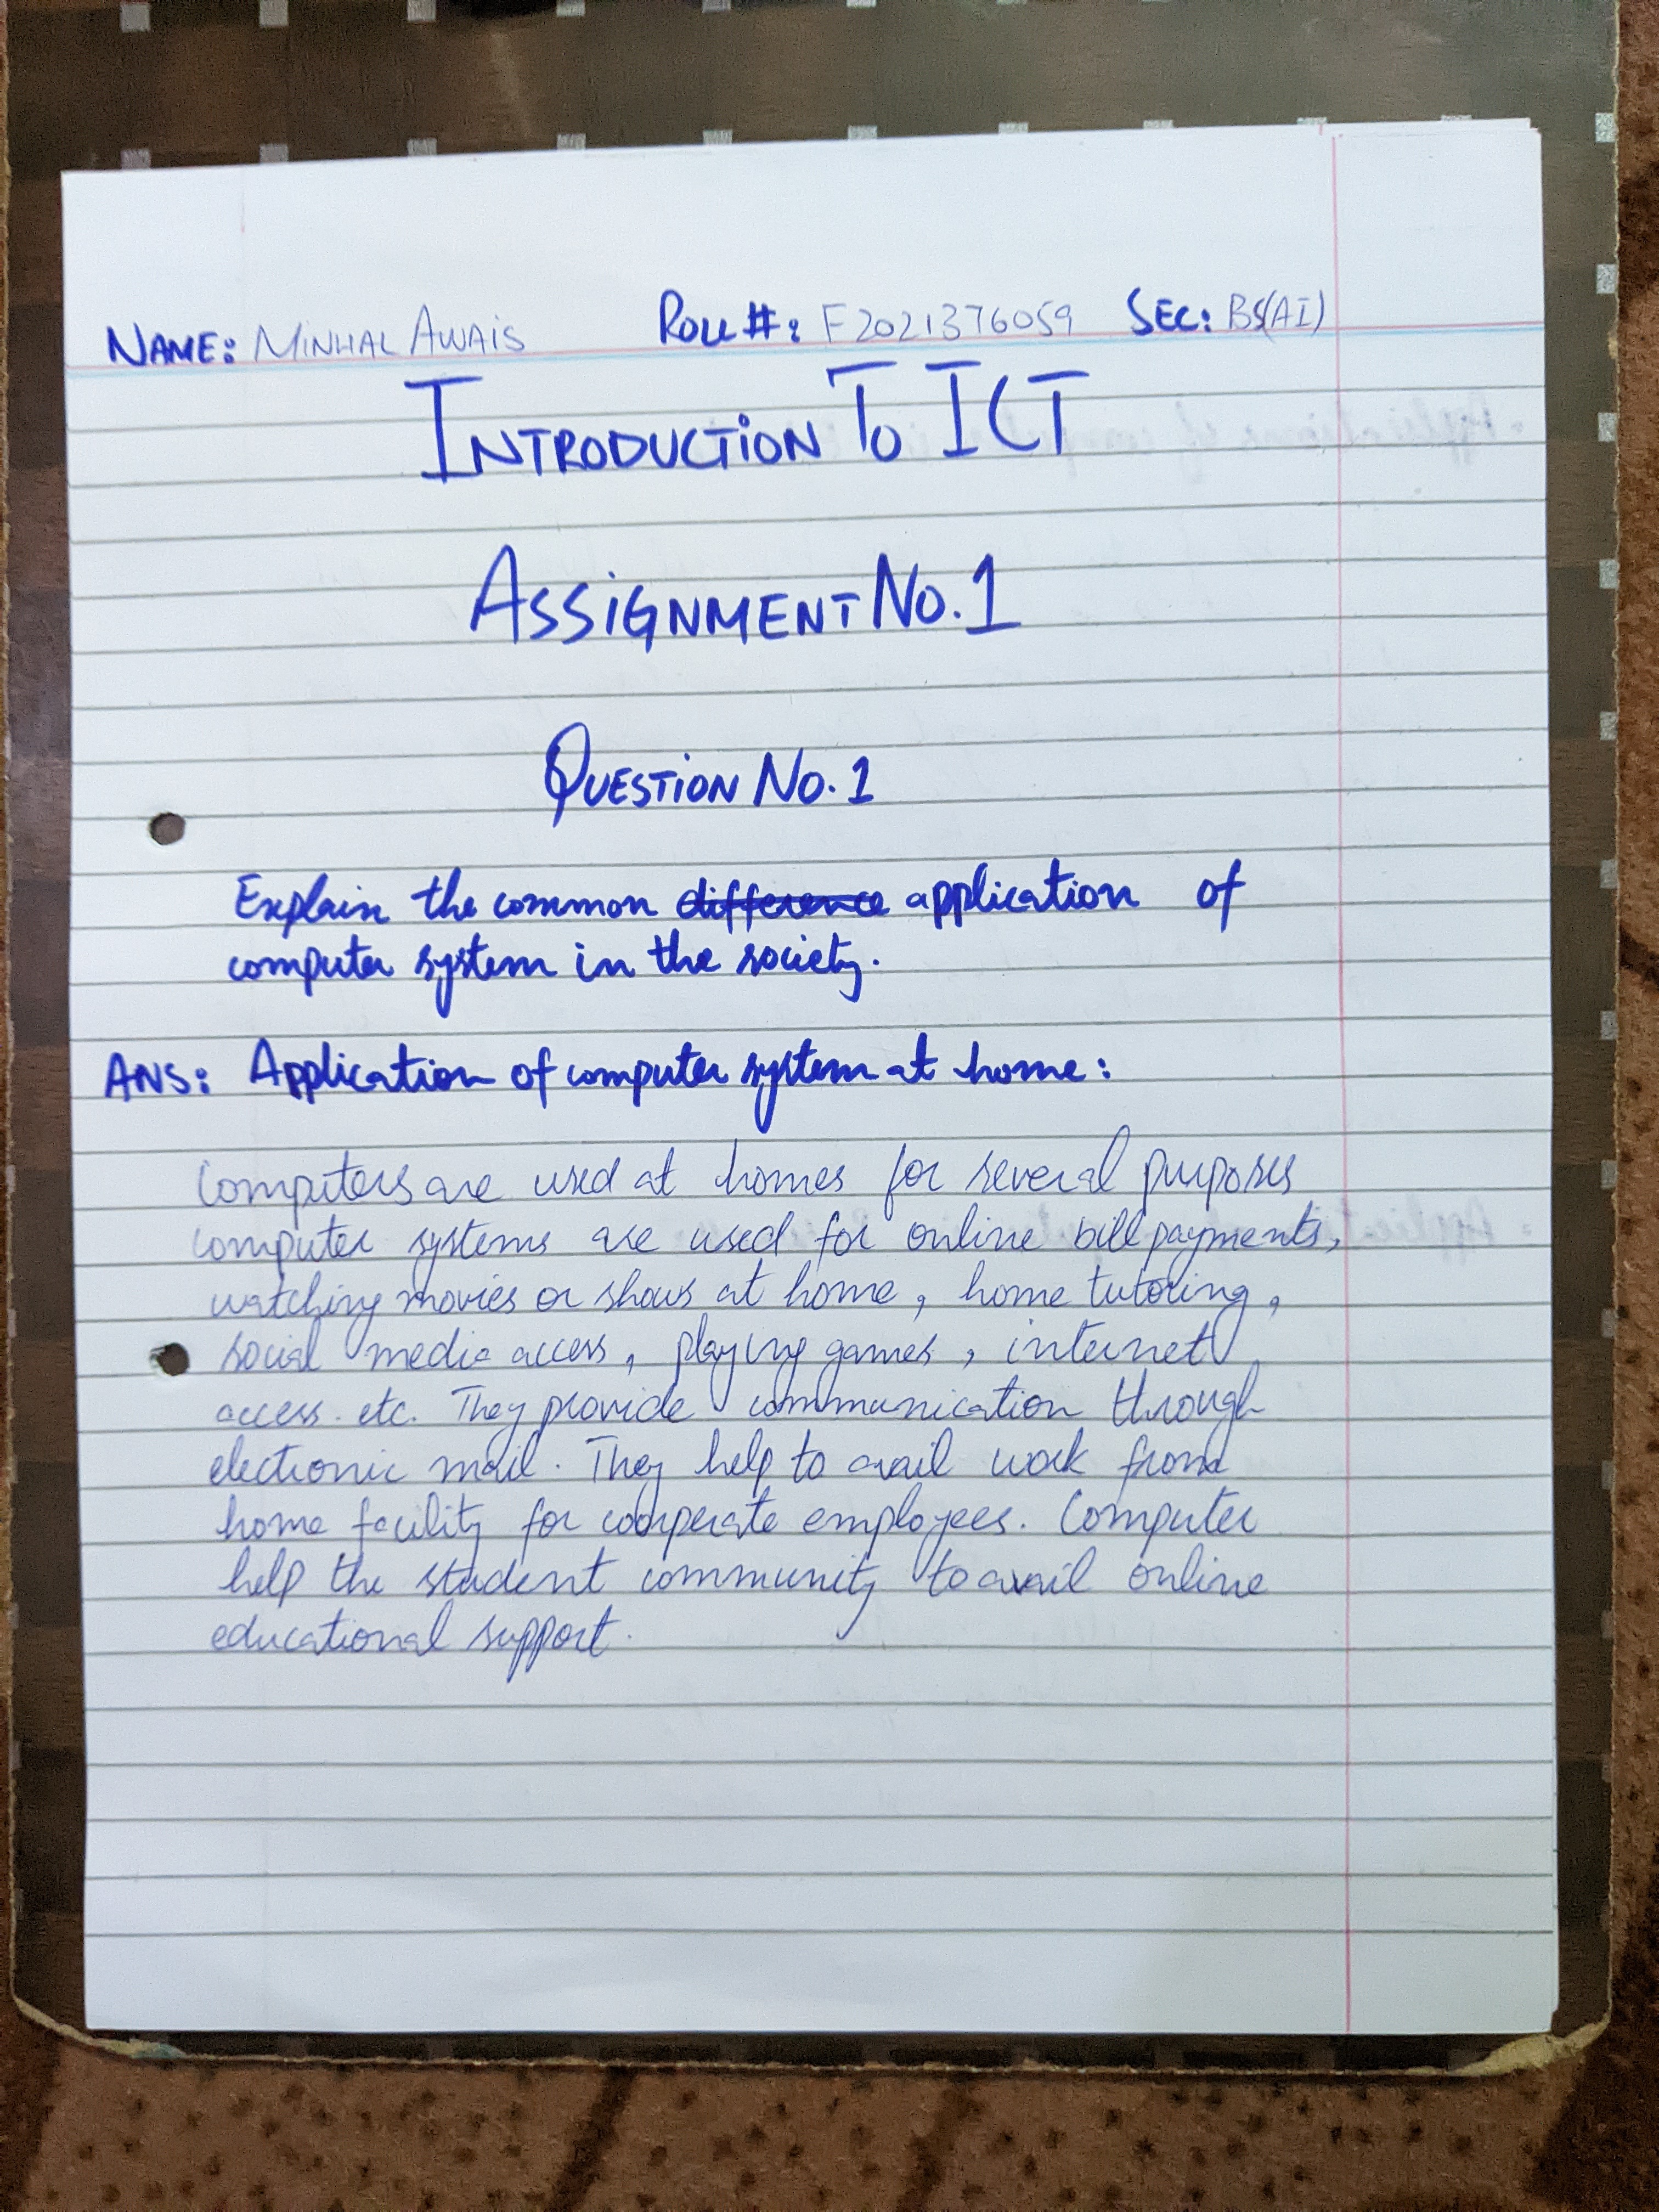 NAME: MINHAL AWAIS ROLL #: F2021376059 SEC: BS(AI)
INTRODUCTION TO ICT
ASSIGNMENT NO. 1
QUESTION NO. 1
Explain the common difference application of
computer system in the society.
ANS: Application of computer system at home:
Computers are used at homes for several purposes
computer systems are used for online bill payments,
watching movies or shows at home, home tutoring,
social media access, playing games, internet
access. etc. They provide communication through
electronic mail. They help to avail work from
home facility for coorperate employees. Computer
help the student community to avail online
educational support.